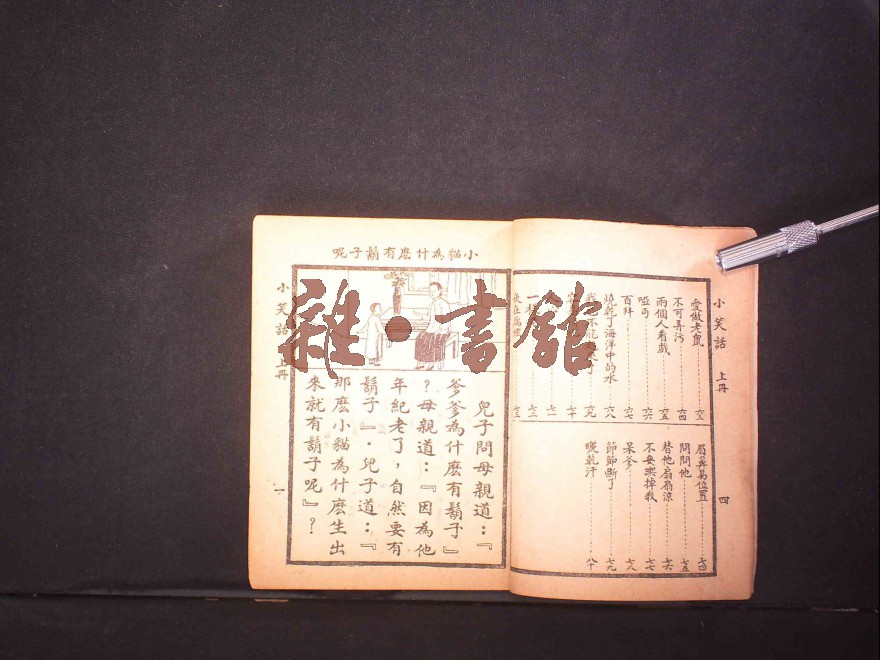 小笑話 上冊
四
愛做老鼠 六三
不可弄污 六四
兩個人看戲 六五
啞丐 六六
百拜 六七
燒乾了海洋中的水 六八
六九
七十
七一
七二
七三
眉鼻易位置 七四
問問他 七五
替他扇扇涼 七六
不要哭掉我 七七
呆爹 七八
節節斷了 七九
曬乾汗 八十
小貓為什麽有鬍子呢
兒子問母親道：『
爹爹為什麽有鬍子』
？母親道：『因為他
年紀老了，自然要有
鬍子』．兒子道：『
那麽小貓為什麽生出
來就有鬍子呢』？
小笑話 上冊
一
雜·書館